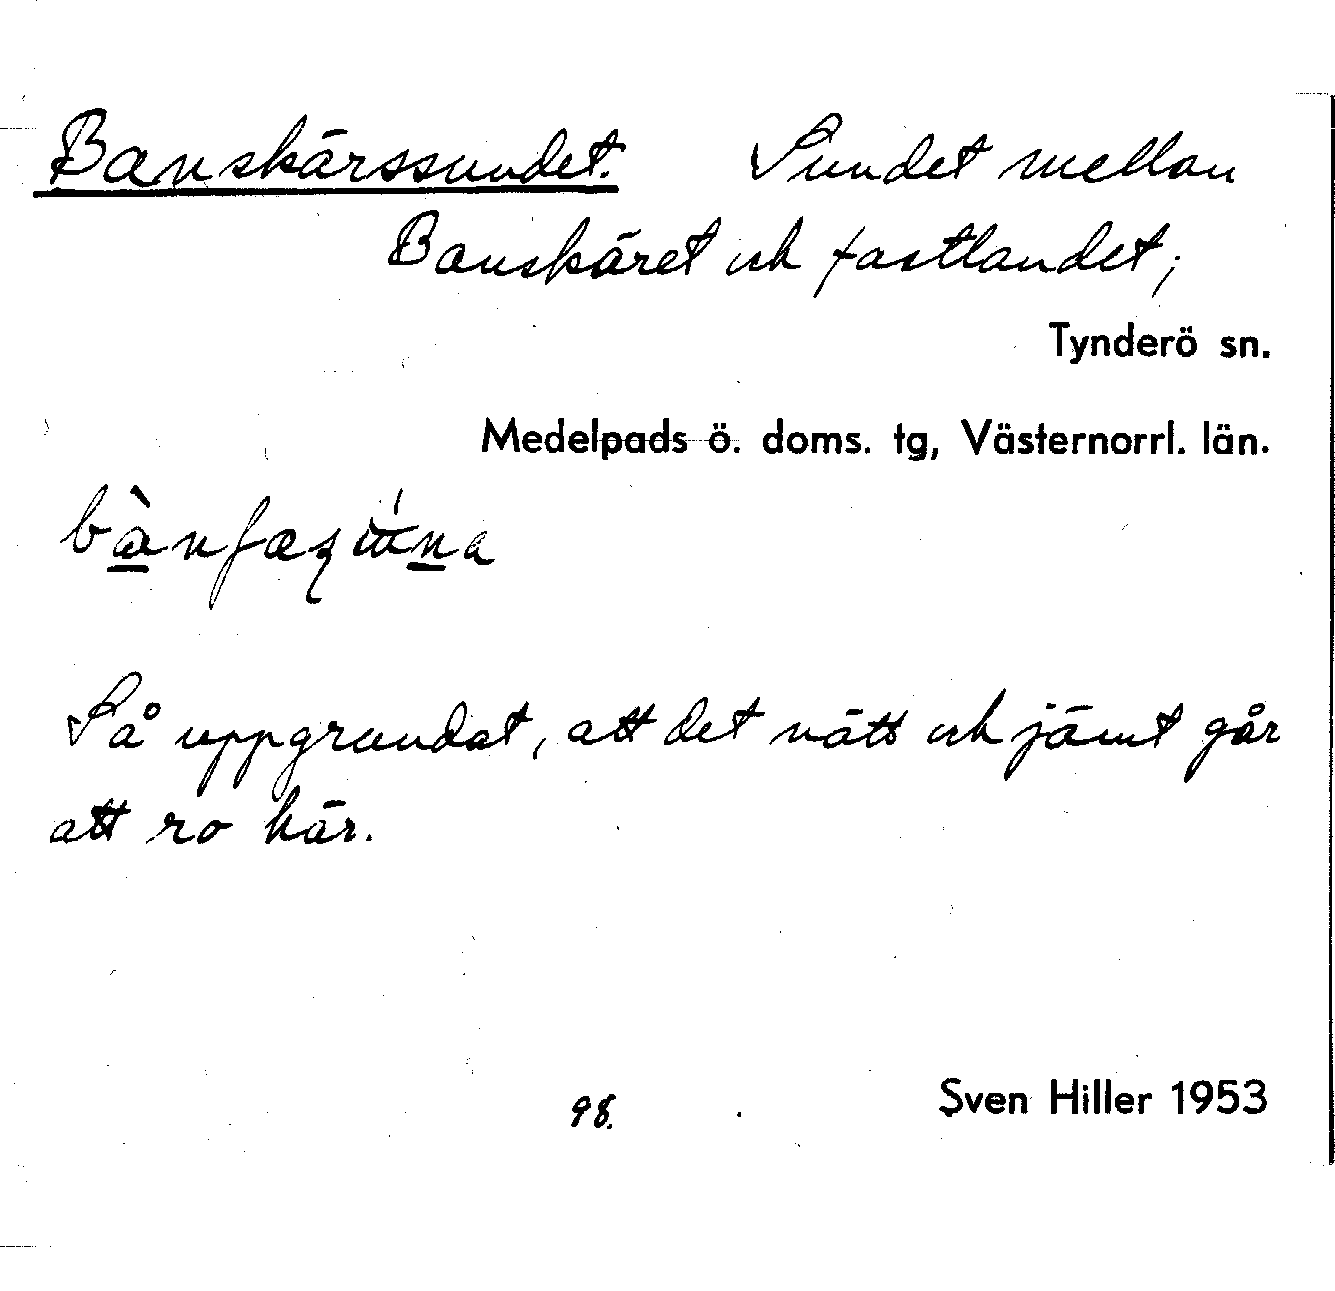 Banskärssundet. Sundet mellan
Banskäret och fastlandet;
Tynderö sn.
Medelpads ö. doms. tg, Västernorrl. län.
Så uppgrundat, att det nätt och jämt går
att ro här.
98.
Sven Hiller 1953